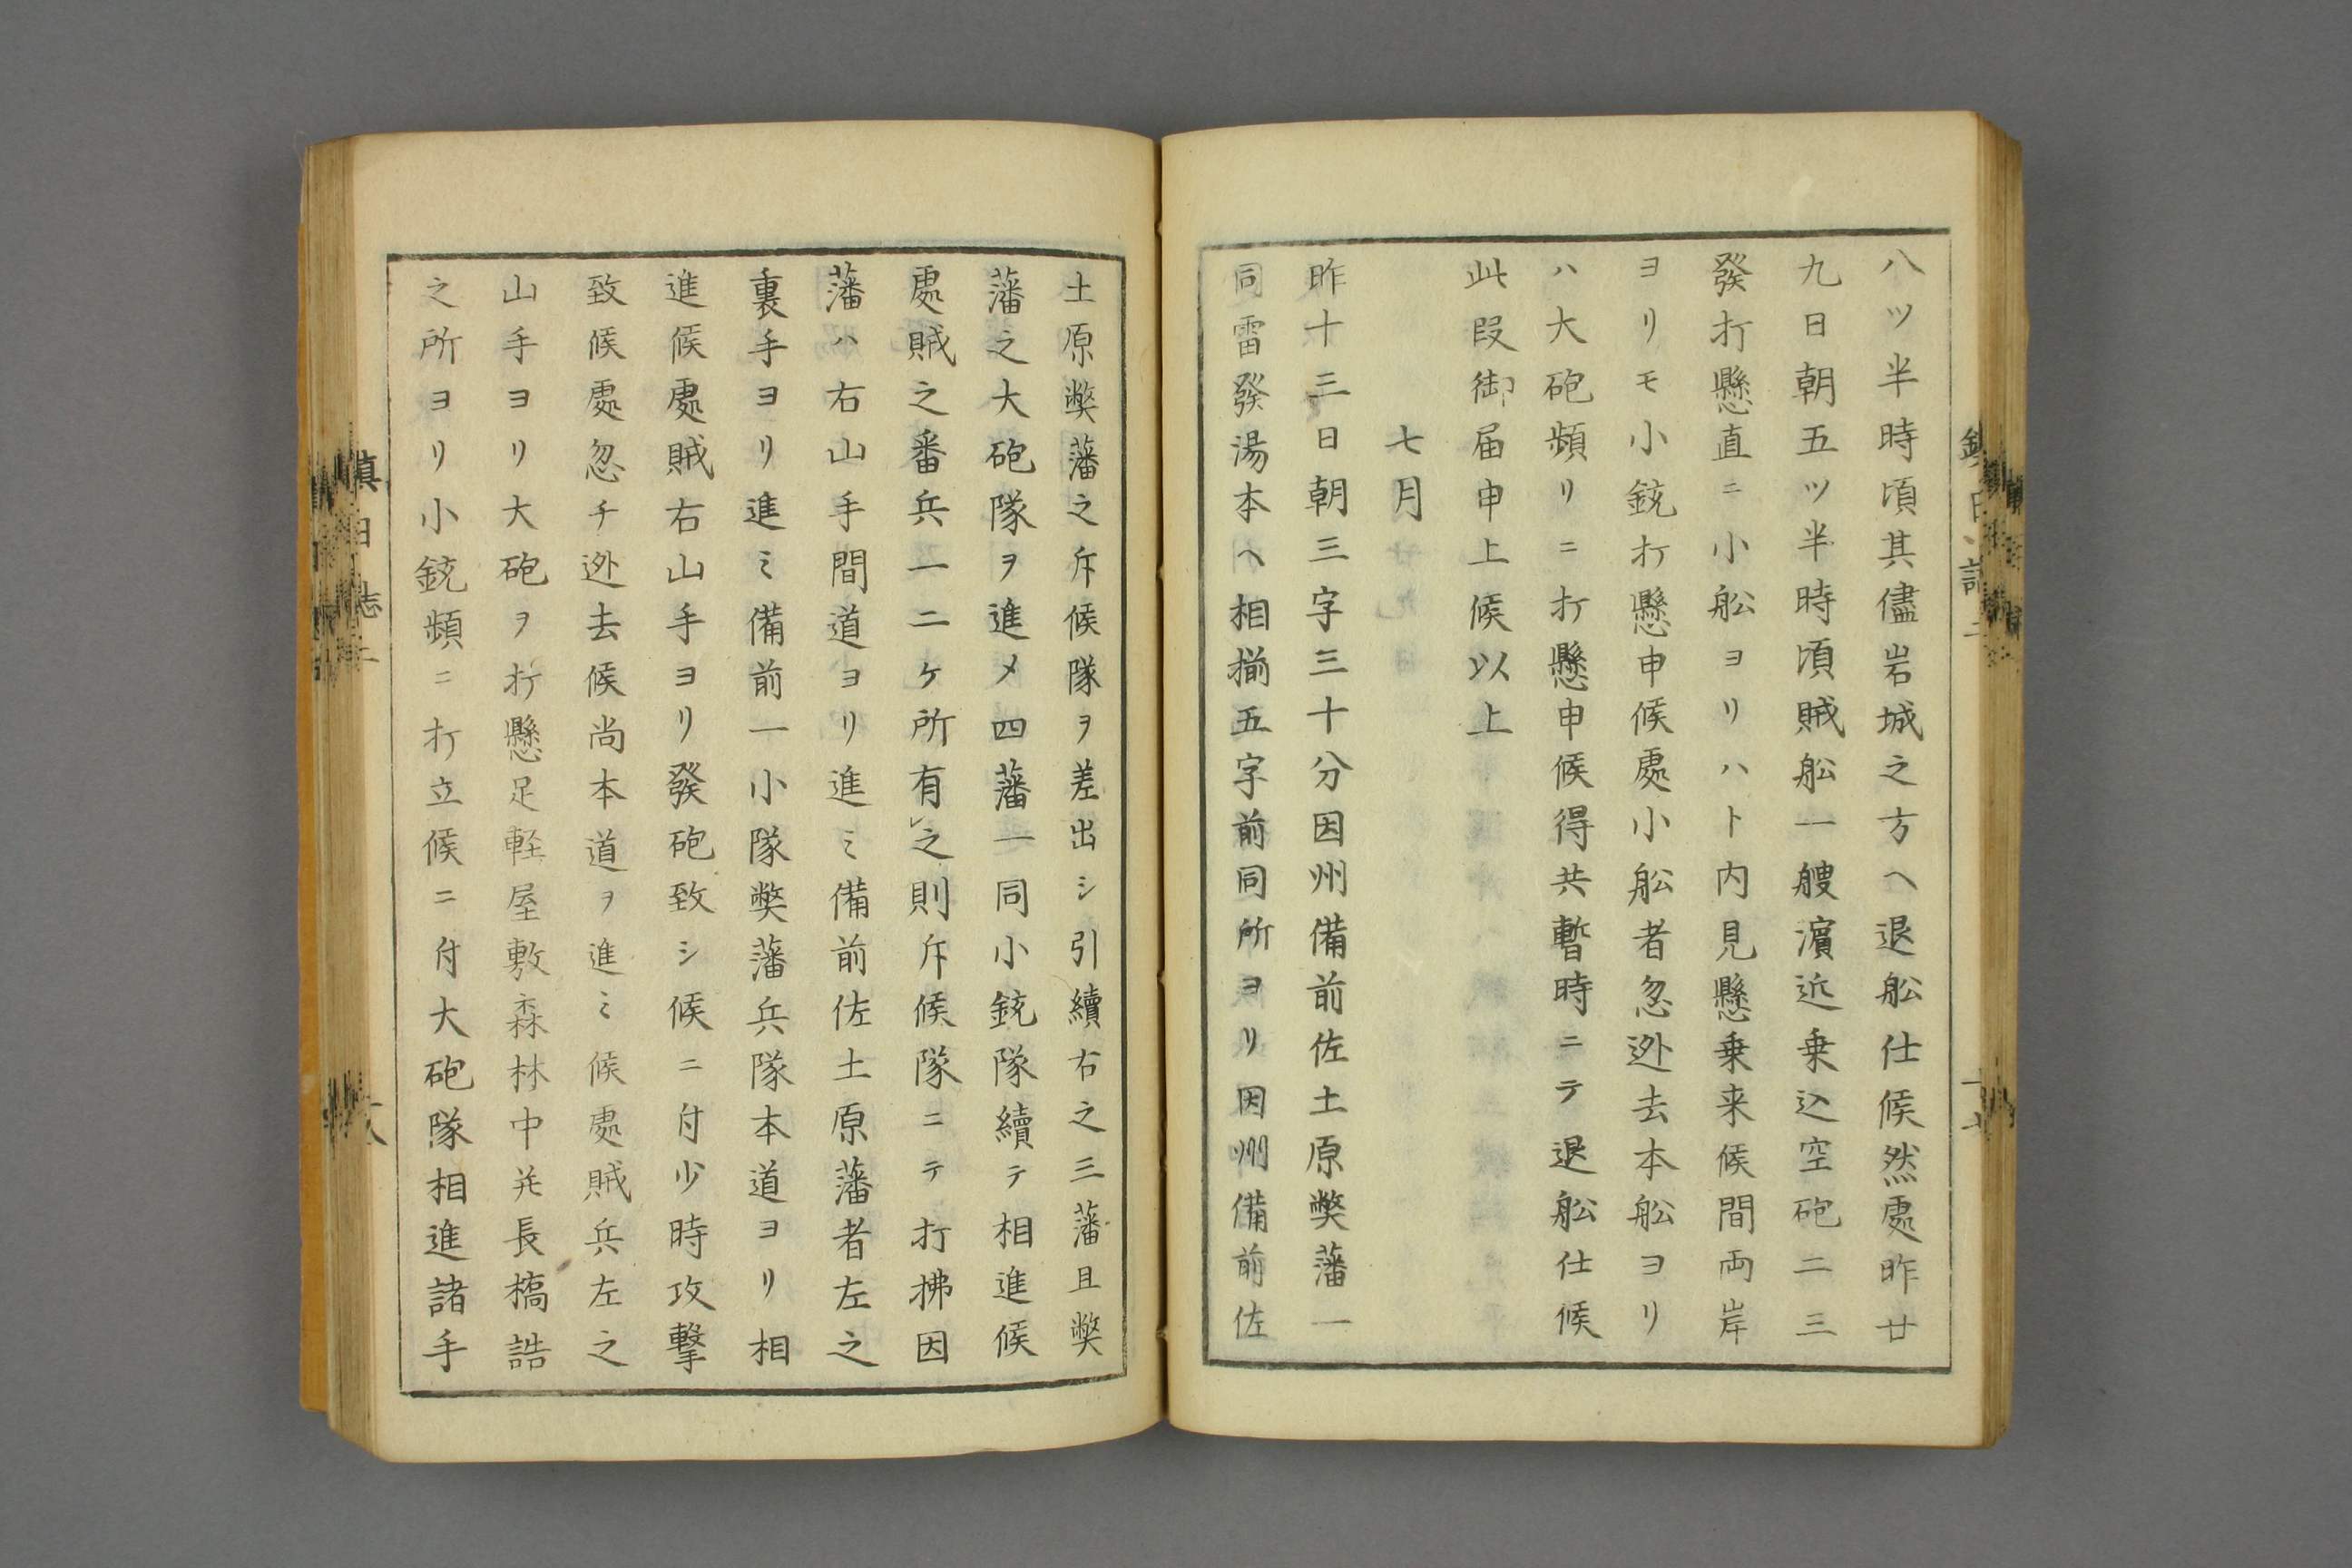 八ツ半時頃其儘岩城之方ヘ退舩仕候然處昨廿
九日朝五ツ半時頃賊舩一艘濵近乗込空砲二三
發打懸直ニ小舩ヨリハト内見懸乗来候間両岸
ヨリモ小銃打懸申候處小舩者忽迯去本舩ヨリ
ハ大砲頻リニ打懸申候得共暫時ニテ退舩仕候
此段御届申上候以上
七月
昨十三日朝三字三十分因州備前佐土原弊藩一
同雷發湯本ヘ相揃五字前同所ヨリ因州備前佐
土原弊藩之斥候隊ヲ差出シ引續右之三藩且弊
藩之大砲隊ヲ進メ四藩一同小銃隊續テ相進候
處賊之番兵一二ケ所有レ之則斥候隊ニテ打拂因
藩ハ右山手間道ヨリ進ミ備前佐土原藩者左之
裏手ヨリ進ミ備前一小隊弊藩兵隊本道ヨリ相
進候處賊右山手ヨリ發砲致シ候ニ付少時攻撃
致候處忽チ迯去候尚本道ヲ進ミ候處賊兵左之
山手ヨリ大砲ヲ打懸足軽屋敷森林中并長橋詰
之所ヨリ小銃頻ニ打立候ニ付大砲隊相進諸手
鎮日誌二